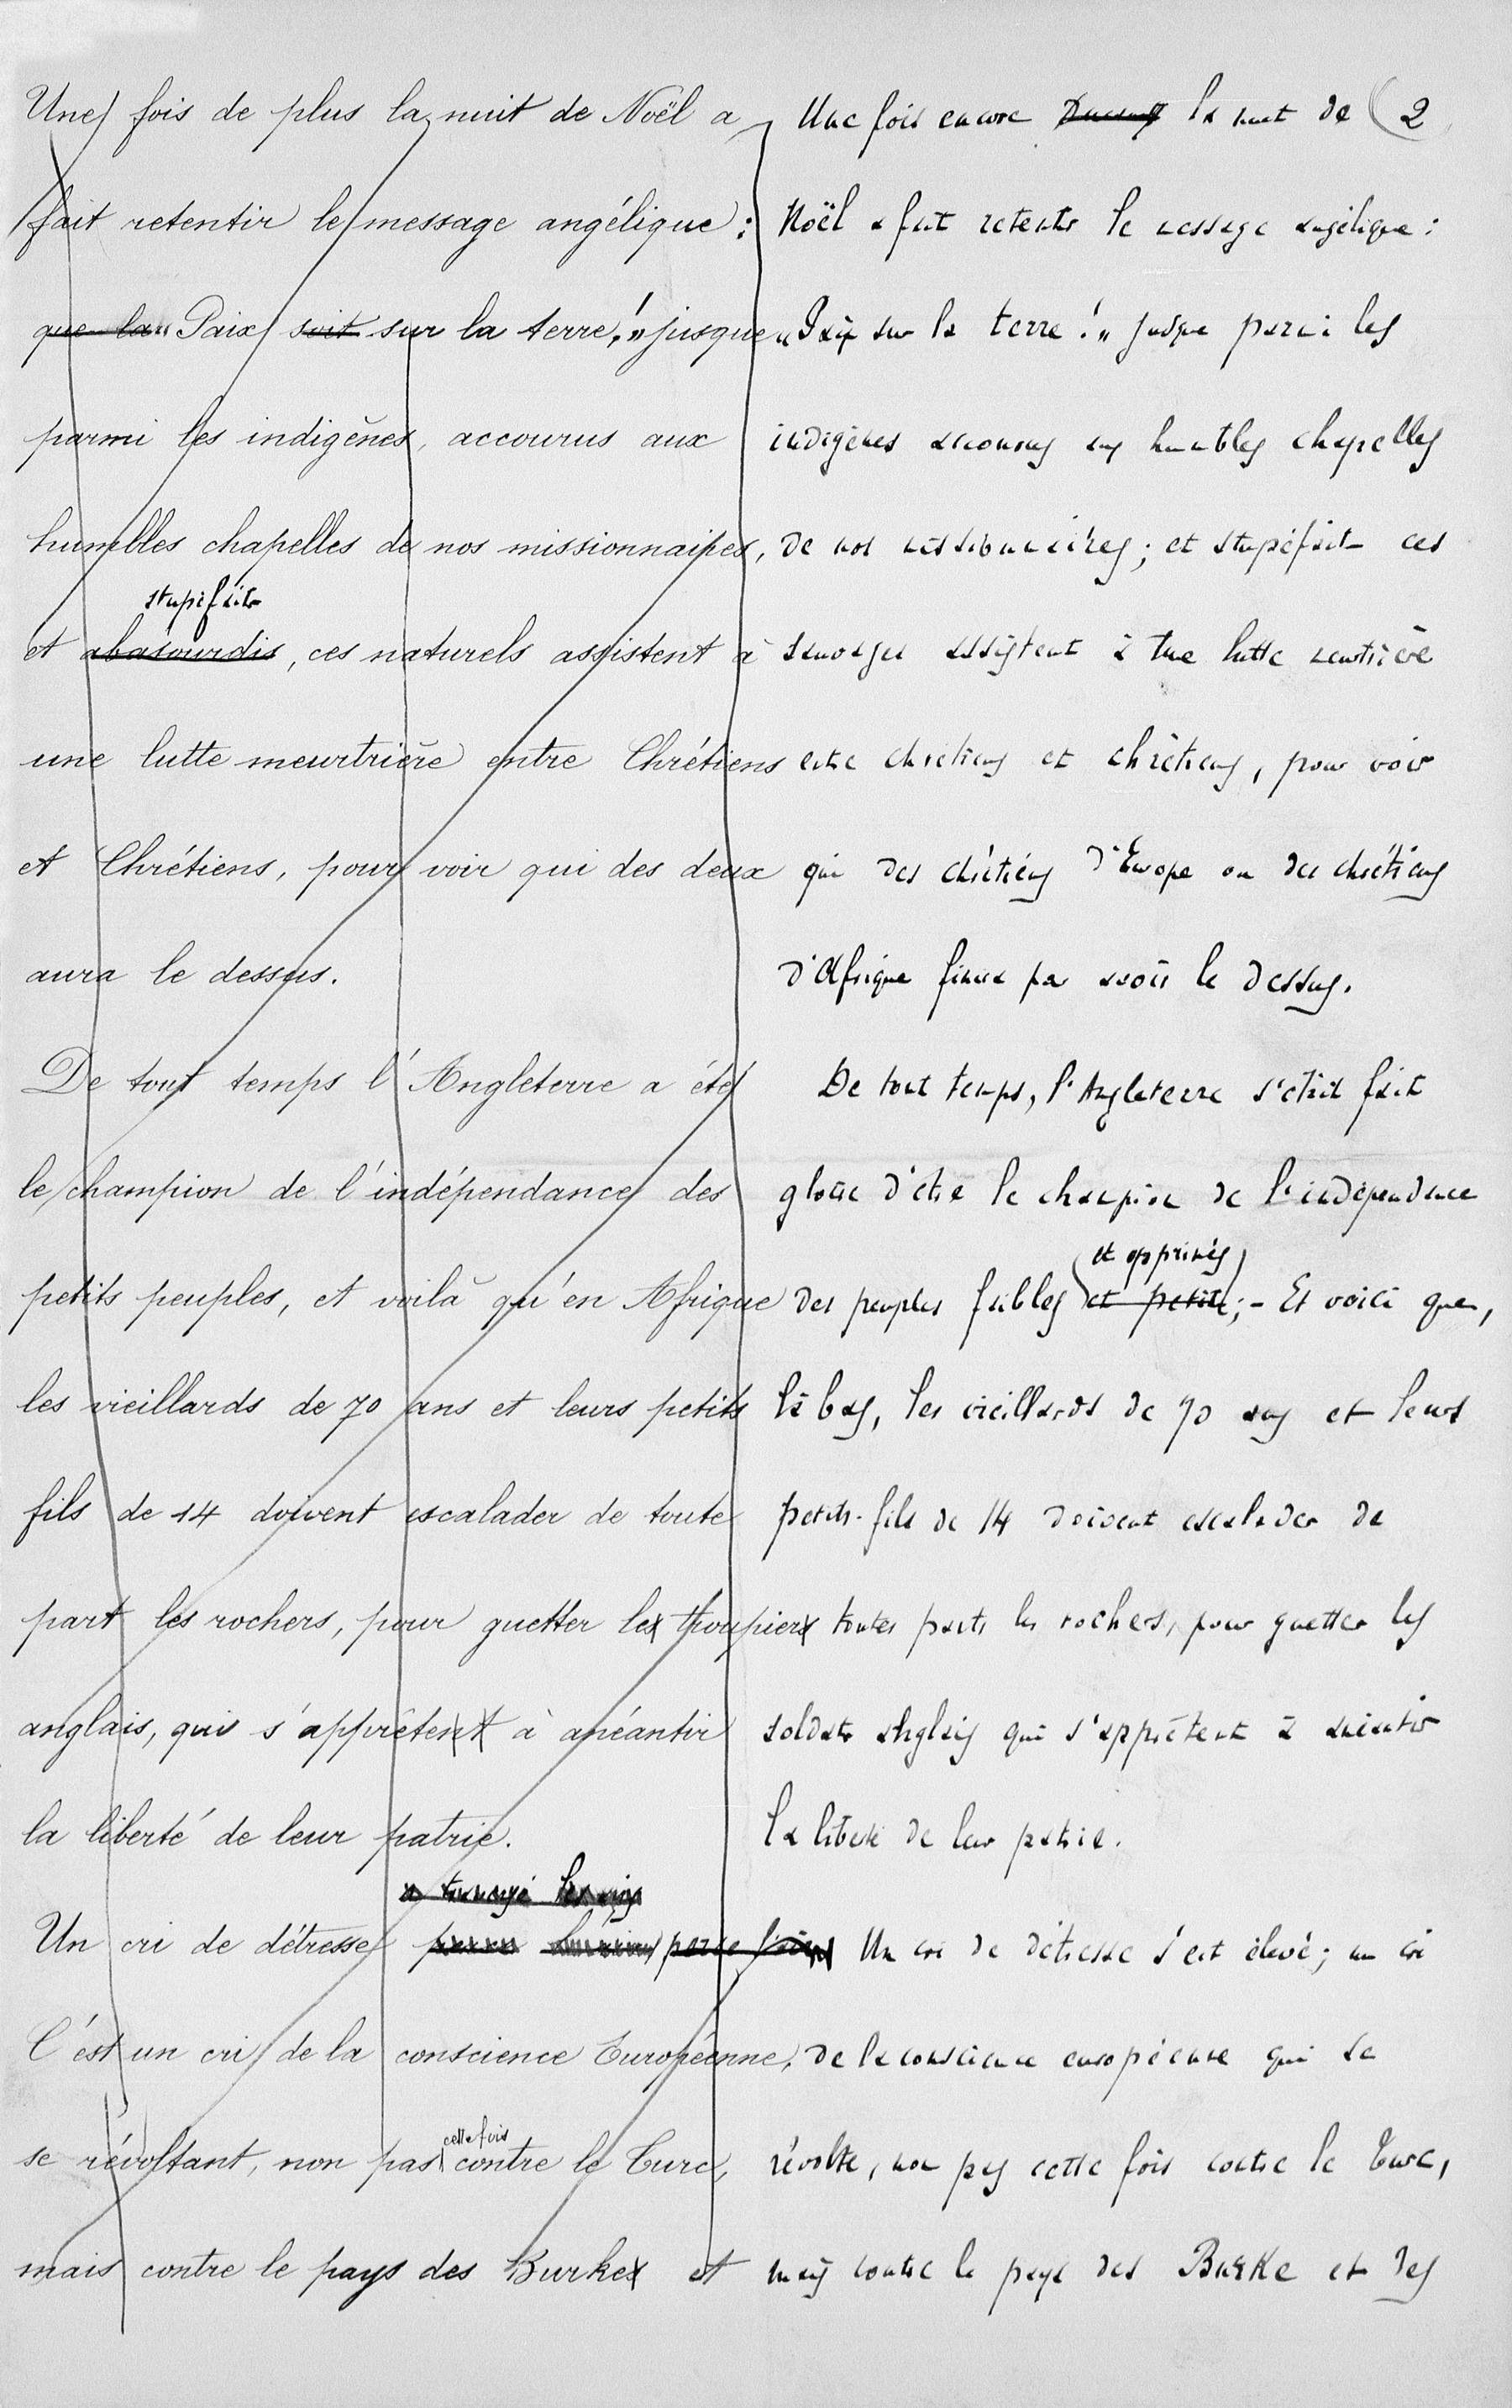 Une fois de plus la nuit de Noël a
fait retentir le message angélique :
que la „Paix soit sur la terre!„ jusque
parmi les indigènes, accourus aux
humbles chapelles de nos missionnaires,
stupéfaits
et abasourdis, ces naturels assistent à
une lutte meurtrière entre Chrétiens
et Chrétiens, pour voir qui des deux
aura le dessus.
De tout temps l'Angleterre a été
le champion de l'indépendance des
petits peuples, et voilà qu'en Afrique
les vieillards de 70 ans et leurs petits
fils de 14 doivent escalader de toute
part les rochers, pour guetter les troupiers
anglais, qui s'apprêtent à anéantir
la liberté de leur patrie.
Un cri de détresse perce
C'est un cri de la conscience Européenne,
cette fois
se révoltant, non pas contre le Turc,
mais contre le pays des Burkes et
2
Une fois encore la nuit de
Noël a fait retentir le message angélique :
„Paix sur la terre!„ jusque parmi les
indigènes accourus aux humbles chapelles
de nos missionnaires; et stupéfaits ces
sauvages assistent à une lutte meurtrière
entre chrétiens et chrétiens, pour voir
qui des chrétiens d'Europe ou des chrétiens
d'Afrique finira par avoir le dessus.
De tout temps, l'Angleterre s'était fait
gloire d'être le champion de l'indépendance
et opprimés
des peuples faibles et petits; - Et voici que,
là bas, les vieillards de 70 ans et leurs
petits-fils de 14 doivent escalader de
toutes parts les rochers, pour guetter les
soldats anglais qui s'apprêtent à anéantir
la liberté de leur patrie.
Un cri de détresse s'est élevé; un cri
de la conscience européenne qui se
révolte, non pas cette fois contre le Turc,
mais contre le pays des Burke et des